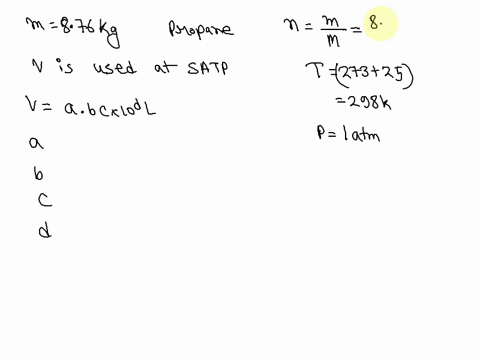 m = 8.76 kg Propane
V is used at SATP
V = a.bc x 10^d L
a
b
c
d
n = m/M = 8.
T = (273+25)
= 298k
P = 1 atm